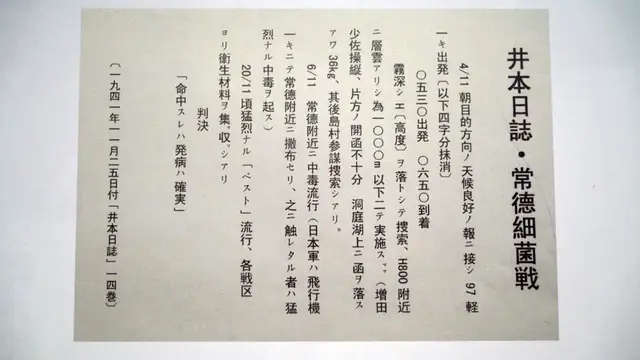 井本日誌・常徳細菌戦
4/11 朝目的方向ノ天候良好ノ報ニ接シ 97 軽
一キ出発〔以下四字分抹消〕
〇五三〇出発 〇六五〇到着
霧深シ エ〔高度〕ヲ落トシテ捜索、H800 附近
ニ層雲アリシ為一〇〇〇m 以下ニテ実施ス、(増田
少佐操縦、片方ノ開函不十分 洞庭湖上ニ函ヲ落ス
アワ 36kg、其後島村参謀捜索シアリ。
6/11 常徳附近ニ中毒流行(日本軍ハ飛行機
一キニテ常徳附近ニ撒布セリ、之ニ触レタル者ハ猛
烈ナル中毒ヲ起ス)
20/11 頃猛烈ナル「ペスト」流行、各戦区
ヨリ衛生材料ヲ集収シアリ
判決
「命中スレハ発病ハ確実」
(一九四一年一一月二五日付「井本日誌」一四巻)